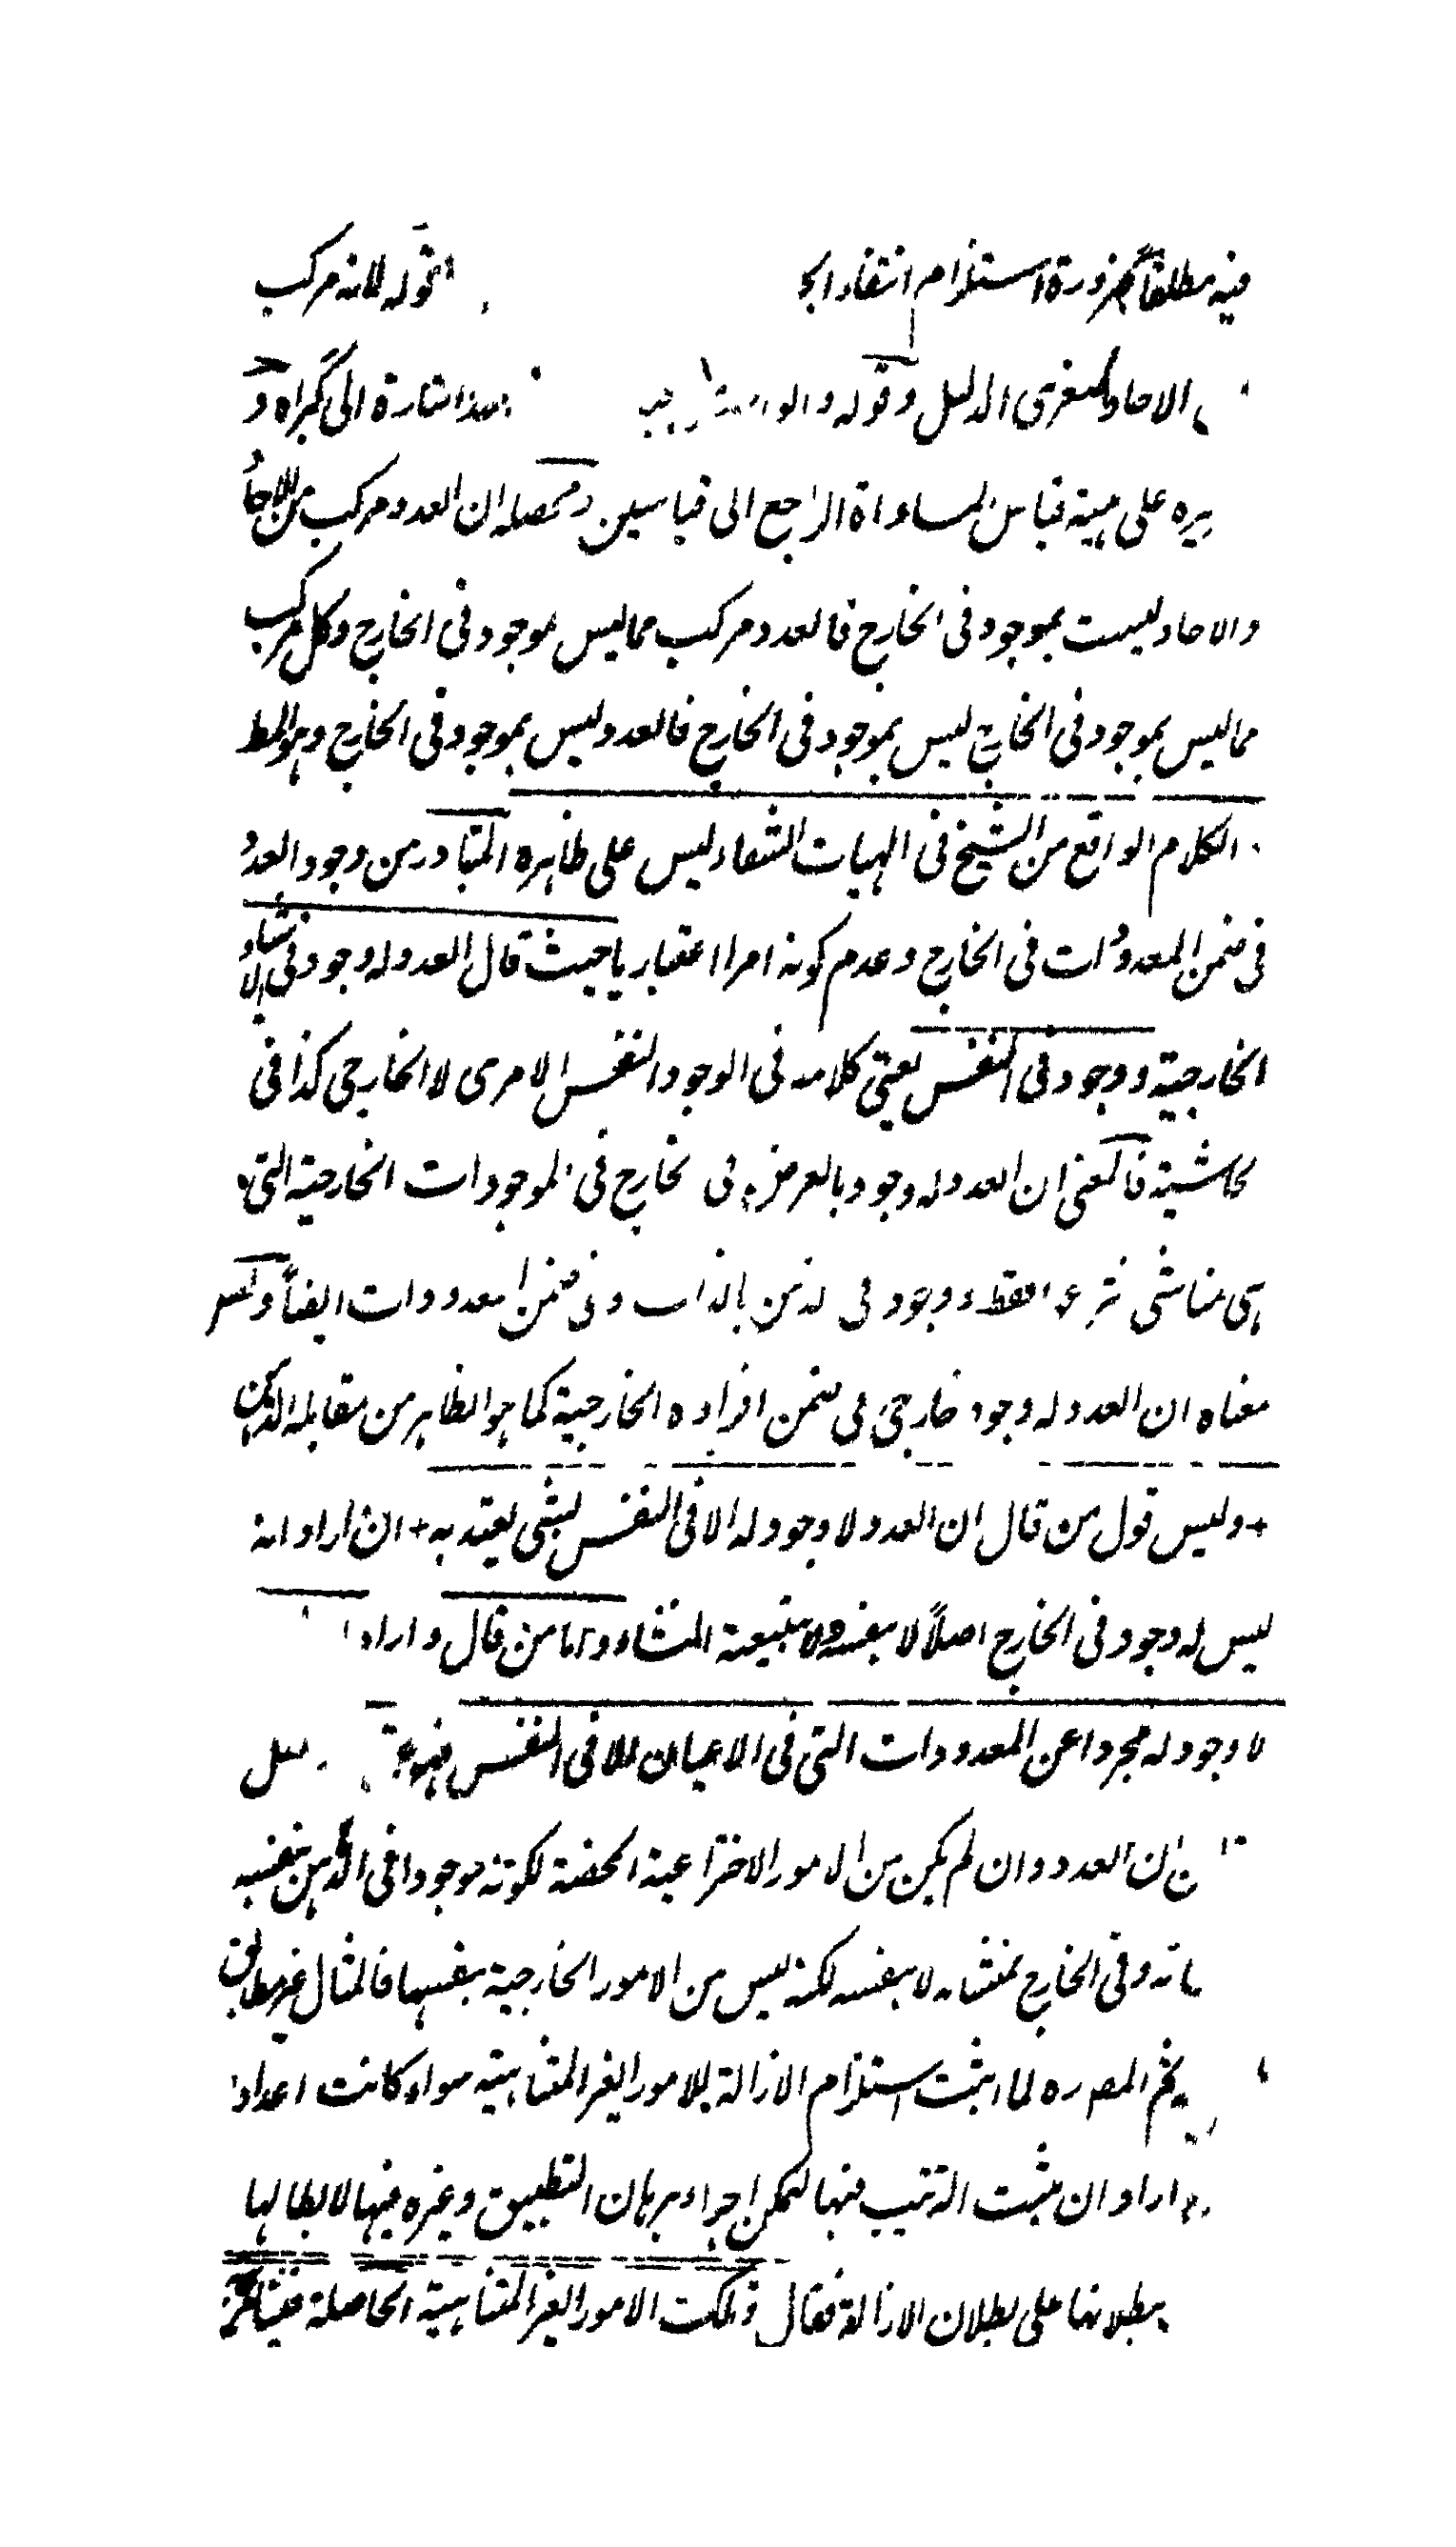 فيه مطلقاً ضرورة استلزام انتفاء الجز قوله لانه مركب
الاحاد صغرى الدليل وقوله والو اشارة الى كبراه و
يره على هيئة قياس المساواة الراجع الى قياسين ومحصله ان العدد مركب من الاحاد
والاحاد ليست بموجود فى الخارج فالعدد مركب مما ليس بموجود فى الخارج وكل مركب
مما ليس بموجود فى الخارج ليس بموجود فى الخارج فالعدد ليس بموجود فى الخارج وهو المط
الكلام الواقع من الشيخ فى الهيات الشفاء ليس على ظاهره المتبادر من وجود العدد
فى ضمن المعدودات فى الخارج وعدم كونه امرا اعتباريا حيث قال العدد له وجود فى الاشياء
الخارجية ووجود فى النفس يعنى كلامه فى الوجود النفس الامرى لا الخارجى كذا فى
لحاشية فالمعنى ان العدد له وجود بالعرض فى لخارج فى الموجودات الخارجية التى
هى مناشى نتزاعه فقط ووجود فى لذهن بالذات وفى ضمن المعدودات ايضاً وليس
معناه ان العدد له وجود خارجى فى ضمن افراده الخارجية كما هو الظاهر من مقابلة الذهن
+ وليس قول من قال ان العدد لا وجود له الا فى النفس لبشى يعتد به + ان اراد انه
ليس له وجود فى الخارج اصلاً لا بنفسه ولا بتبعية المنشاء واما من قال واراد
لا وجود له مجردا عن المعدودات التى فى الاعيان الا فى النفس فهو
ن ان العدد وان لم يكن من الامور الاختراعية المحضة لكونه موجودا فى الذهن بنفسه
اته وفى الخارج بمنشاه لا بنفسه لكنه ليس من الامور الخارجية بنفسها فالمثال غير مطابق
ثم المصره لما اثبت استلزام الازالة للامور الغير المتناهية سواء كانت اعدادا
اراد ان يثبت الترتيب فيها ليمكن اجراء برهان التطبيق وغيره فيها لابطالها
ببطلانها على بطلان الازالة فقال وتلك الامور الغير المتناهية الحاصلة فينا